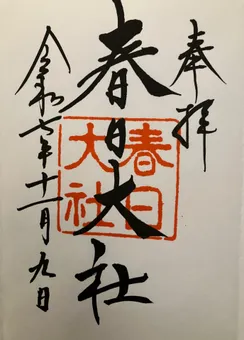 奉拝
春日大社
春日大社
令和七年十一月九日